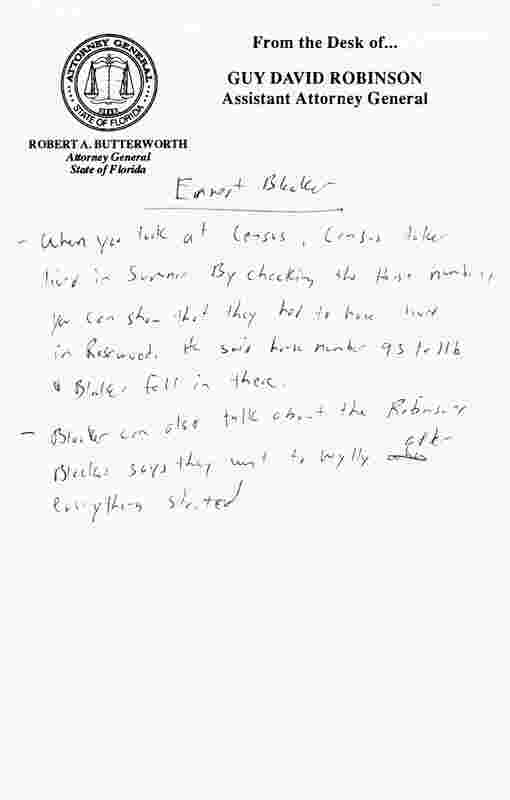 From the Desk of...
ATTORNEY GENERAL
STATE OF FLORIDA
GUY DAVID ROBINSON
Assistant Attorney General
ROBERT A. BUTTERWORTH
Attorney General
State of Florida
Ernest Blocker
- When you look at Census, Census taker
lived in Sumner. By checking the house numbers,
you can show that they had to have lived
in Rosewood. He said house number 93 to 116
& Blocker fell in there.
- Blocker can also talk about the Robinsons
Blocker says they went to Wylly after
everything started